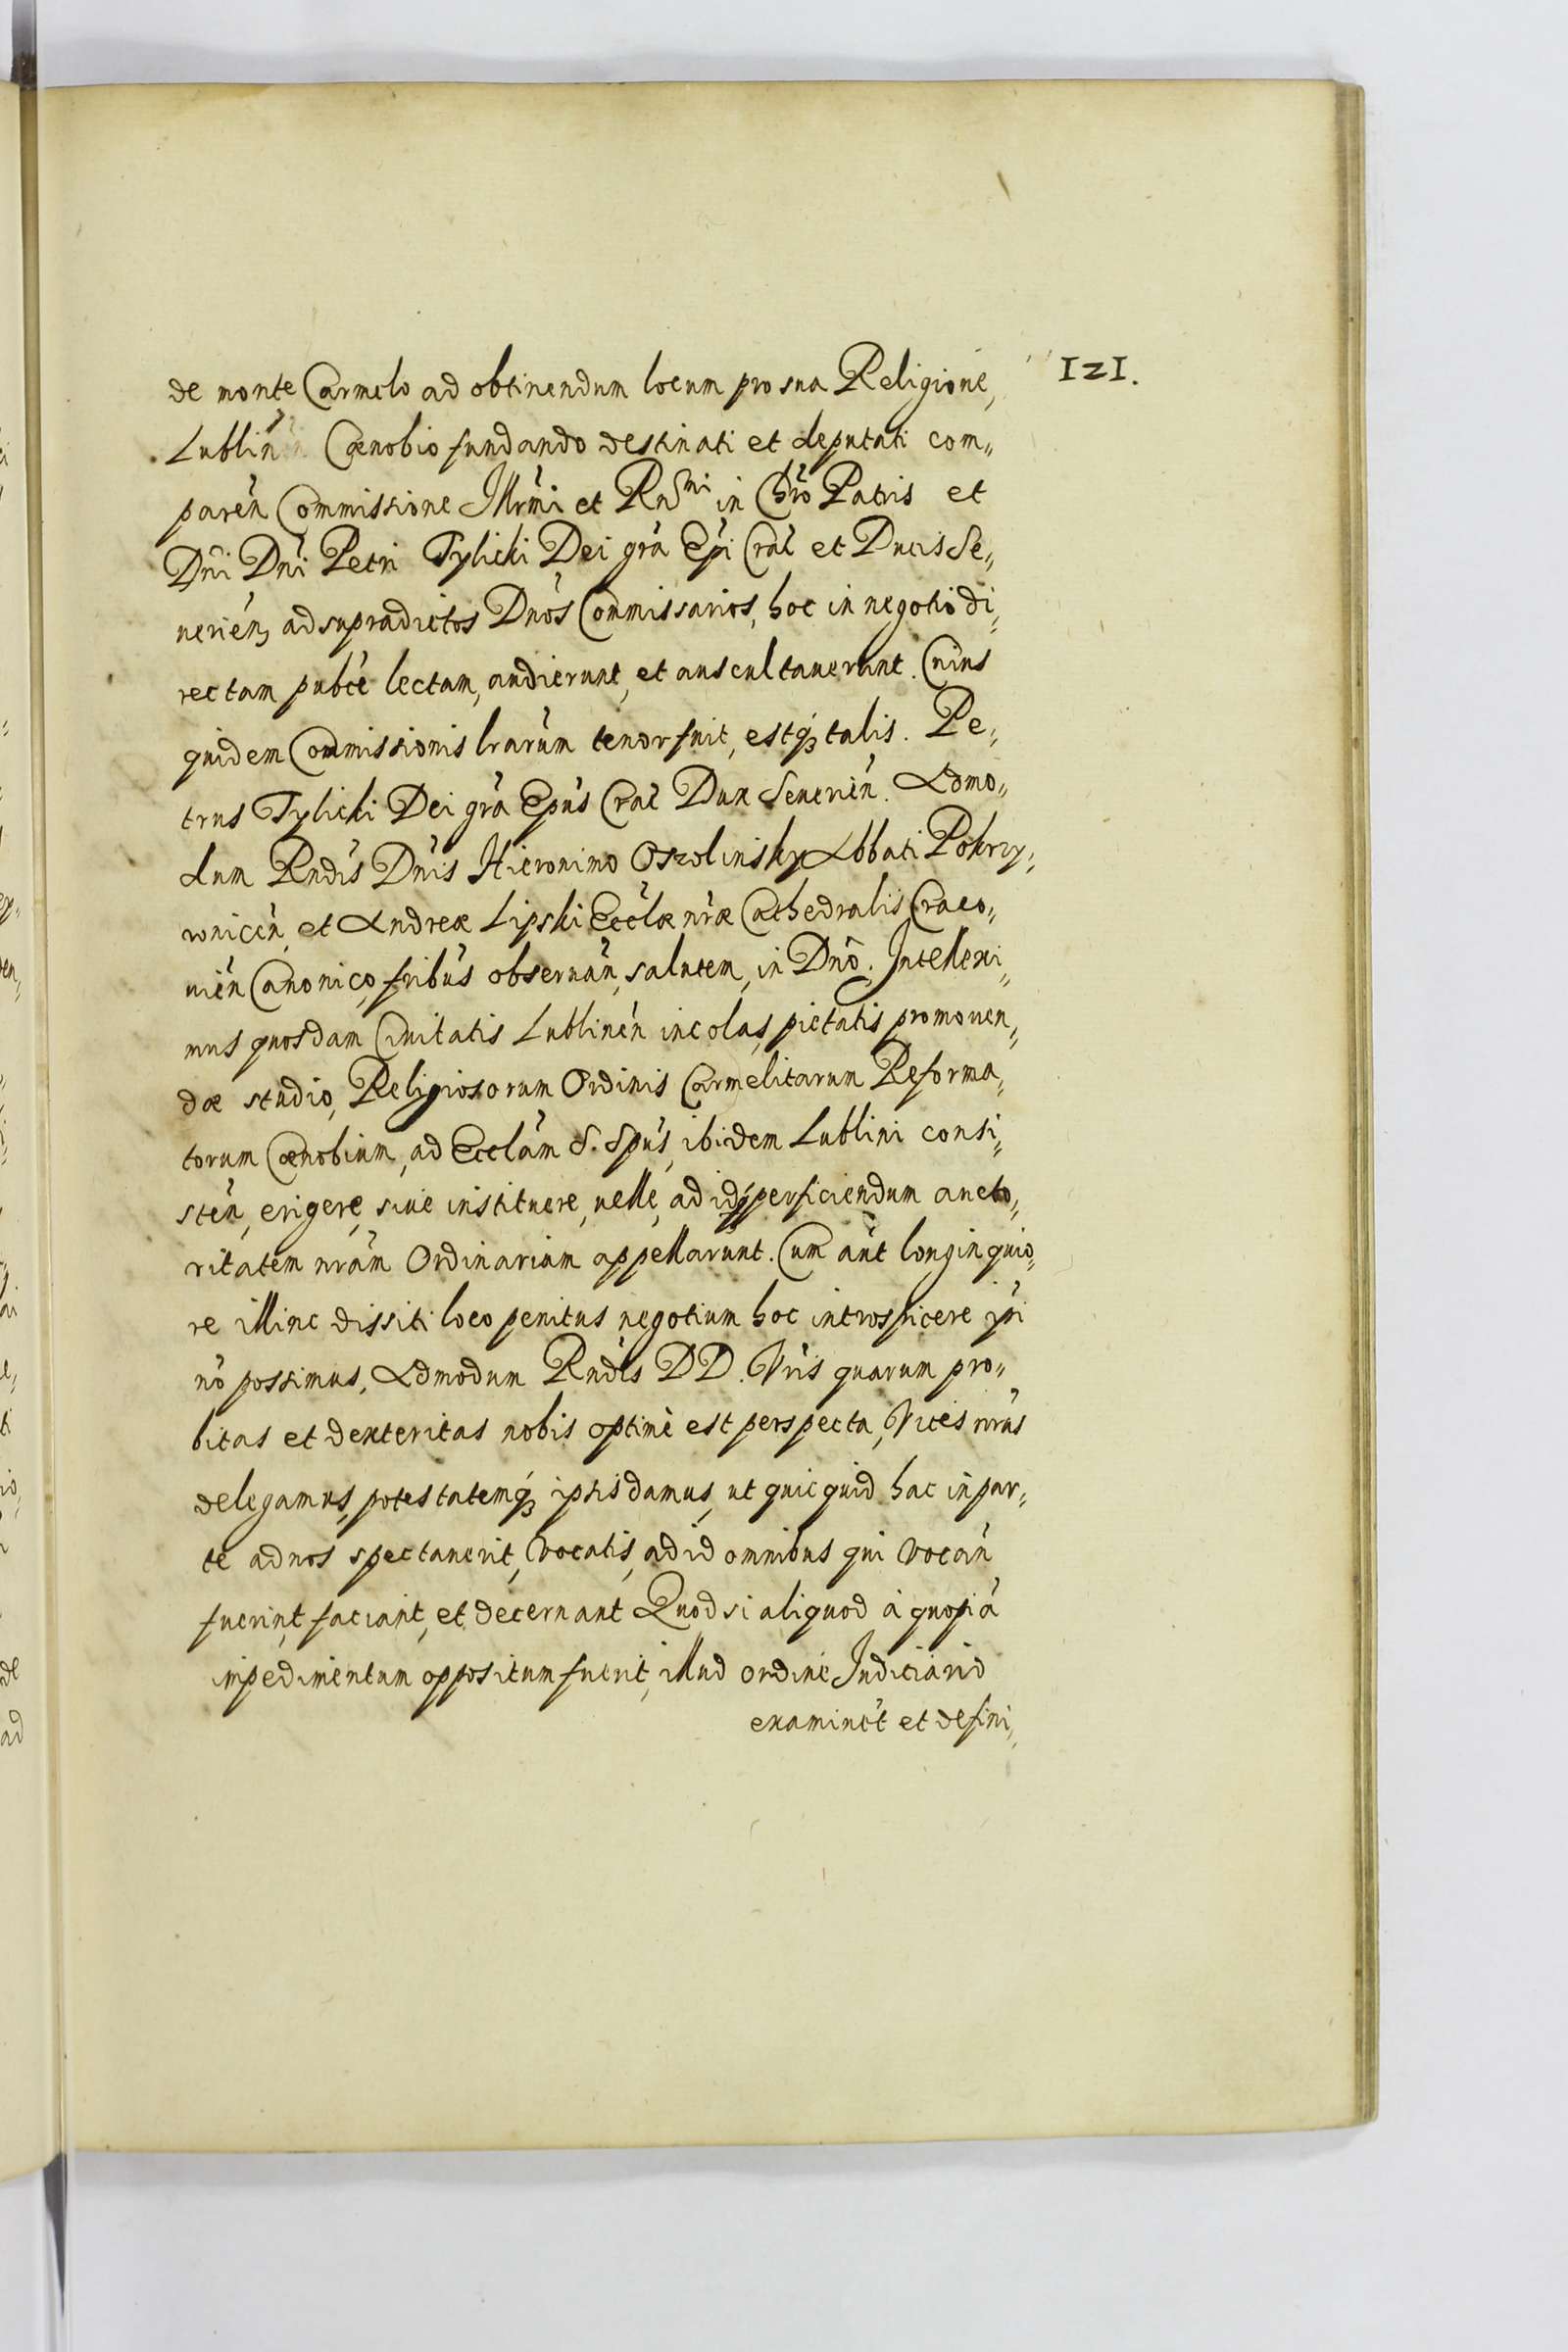 121.
de monte Carmelo ad obtinendum locum pro sua Religione,
Lublin̄ Cœnobio fundando destinati et deputati com„
paren̄ Commissione Illrm̄i et Rn̄dmi in Chr̄o Patris et
Dn̄i Dn̄i Petri Tylicki Dei grā Ep̄i Crac̄ et Ducis Se„
uerien̄, ad supradictos Dn̄os Commissarios, hoc in negotio di„
rectam pub̄ce lectam, audierunt, et auscultauerunt. Cuius
quidem Commissionis lrarūm tenor fuit, estq₃ talis. Pe„
trus Tylicki Dei grā Ep̄us Crac̄ Dux Seuerien̄. Admo„
dum Rn̄dis Dn̄is Hieronimo Oszolinsky Abbati Pokrzy„
wnicen̄, et Andreæ Lipski Eccl̄æ nr̄æ Cathedralis Craco„
uien̄ Canonico, fribūs obseruan̄, salutem, in Dn̄o. Intellexi„
mus quosdam Ciuitatis Lublinen̄ incolas, pietatis promouen„
dæ studio, Religiosorum Ordinis Carmelitarum Reforma„
torum Cœnobium, ad Eccl̄am S. Spūs, ibidem Lublini consi„
sten̄, erigere, siue instituere, uelle, ad idq₃ perficiendum aucto„
ritatem nrām Ordinariam appellarunt. Cum aūt longinquio„
re illinc dissiti loco penitus negotium hoc introspicere ip̄i
nō possimus, Admodum Rn̄dis DD. Vrīs quarum pro„
bitas et dexteritas nobis optimè est perspecta, Vices nrās
delegamus, potestatemq₃ ipsis damus, ut quicquid hac in par„
te ad nos spectauerit, vocatis, ad id omnibus qui vocan̄
fuerint, faciant, et decernant Quod si aliquod à quopiā
impedimentum oppositum fuerit, illud ordine Judiciario
examinēt et defini„